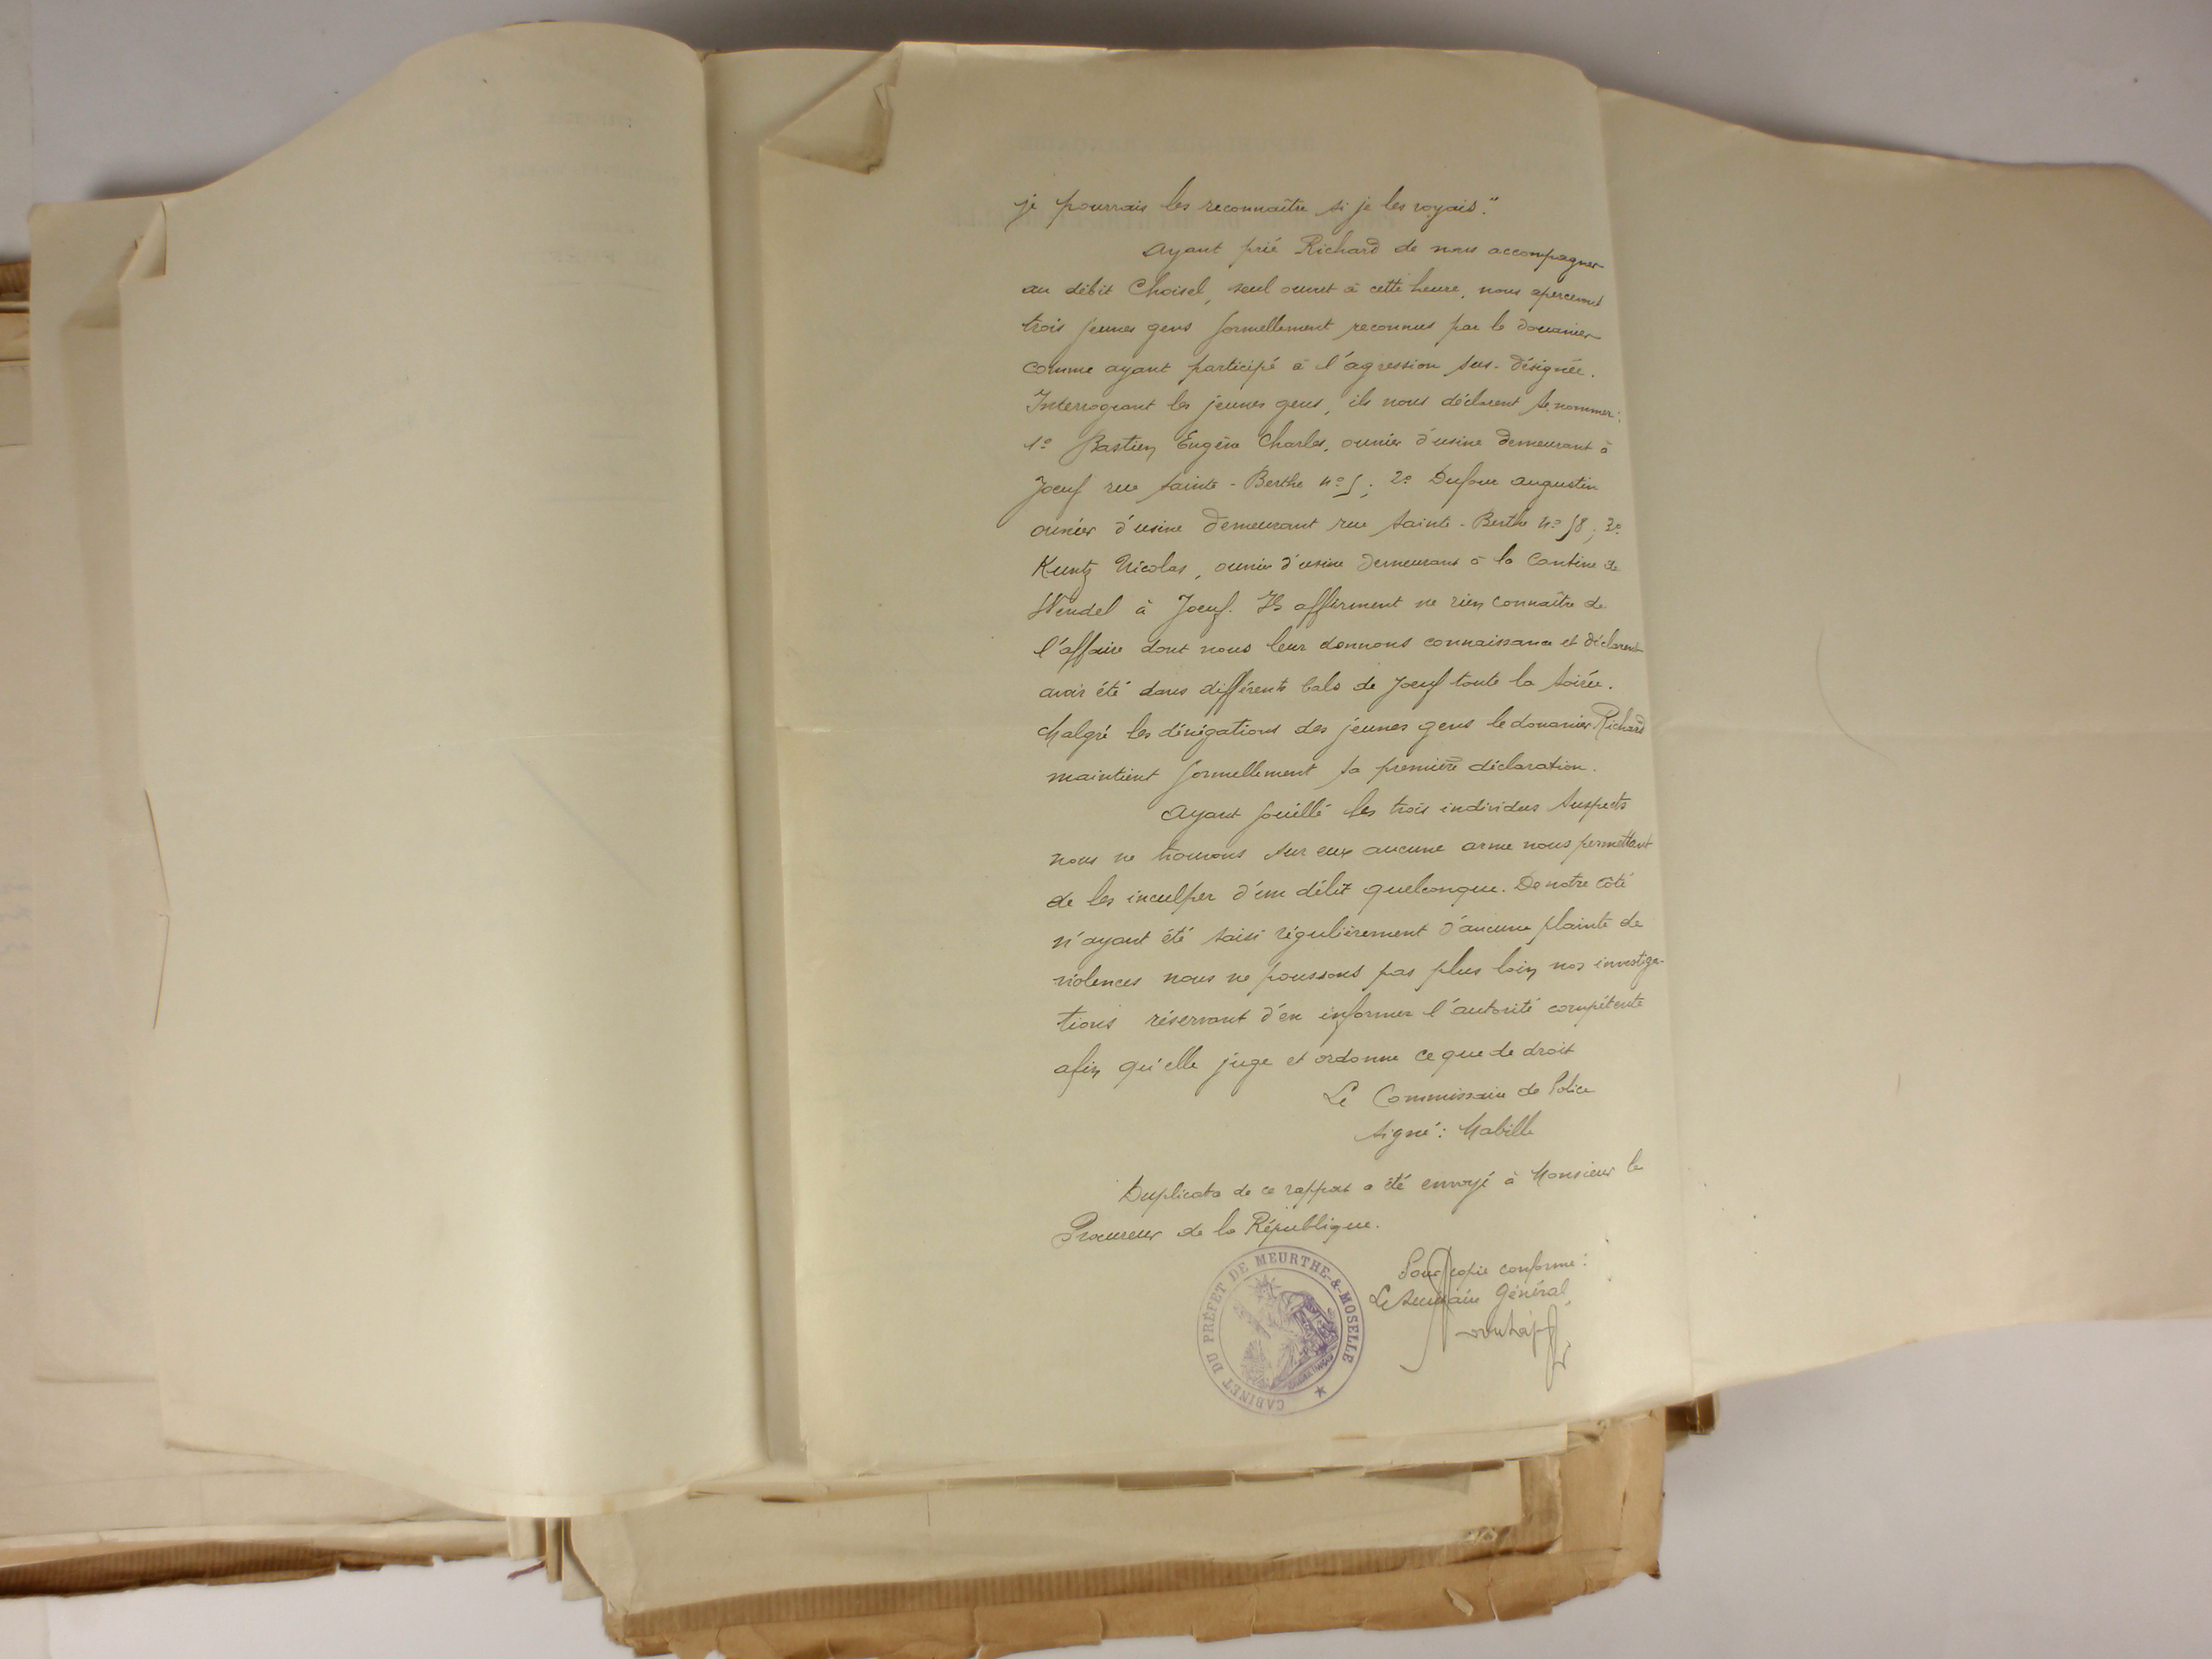 je pourrais les reconnaître si je les voyais."
Ayant prié Richard de nous accompagner
au débit Choisel, seul ouvert à cette heure, nous apercevons
trois jeunes gens formellement reconnus par le douanier
comme ayant participé à l'agression sus-désignée.
Interrogeant les jeunes gens, ils nous déclarent se nommer:
1º Bastien Eugène Charles, ouvrier d'usine demeurant à
Joeuf rue Sainte-Berthe nº 5; 2º Dufour Augustin
ouvrier d'usine demeurant rue Sainte-Berthe nº 58; 3º
Kuntz Nicolas, ouvrier d'usine demeurant à la Cantine de
Wendel à Joeuf. Ils affirment ne rien connaître de
l'affaire dont nous leur donnons connaissance et déclarent
avoir été dans différents bals de Joeuf toute la soirée.
Malgré les dénégations des jeunes gens le douanier Richard
maintient formellement sa première déclaration.
Ayant fouillé les trois individus suspects
nous ne trouvons sur eux aucune arme nous permettant
de les inculper d'un délit quelconque. De notre côté
n'ayant été saisi régulièrement d'aucune plainte de
violences nous ne poussons pas plus loin nos investiga-
tions réservant d'en informer l'autorité compétente
afin qu'elle juge et ordonne ce que de droit
Le Commissaire de Police
signé: Mabille
Duplicata de ce rapport a été envoyé à Monsieur le
Procureur de la République.
Pour copie conforme:
Le Secrétaire Général,
CABINET DU PRÉFET DE MEURTHE-&-MOSELLE